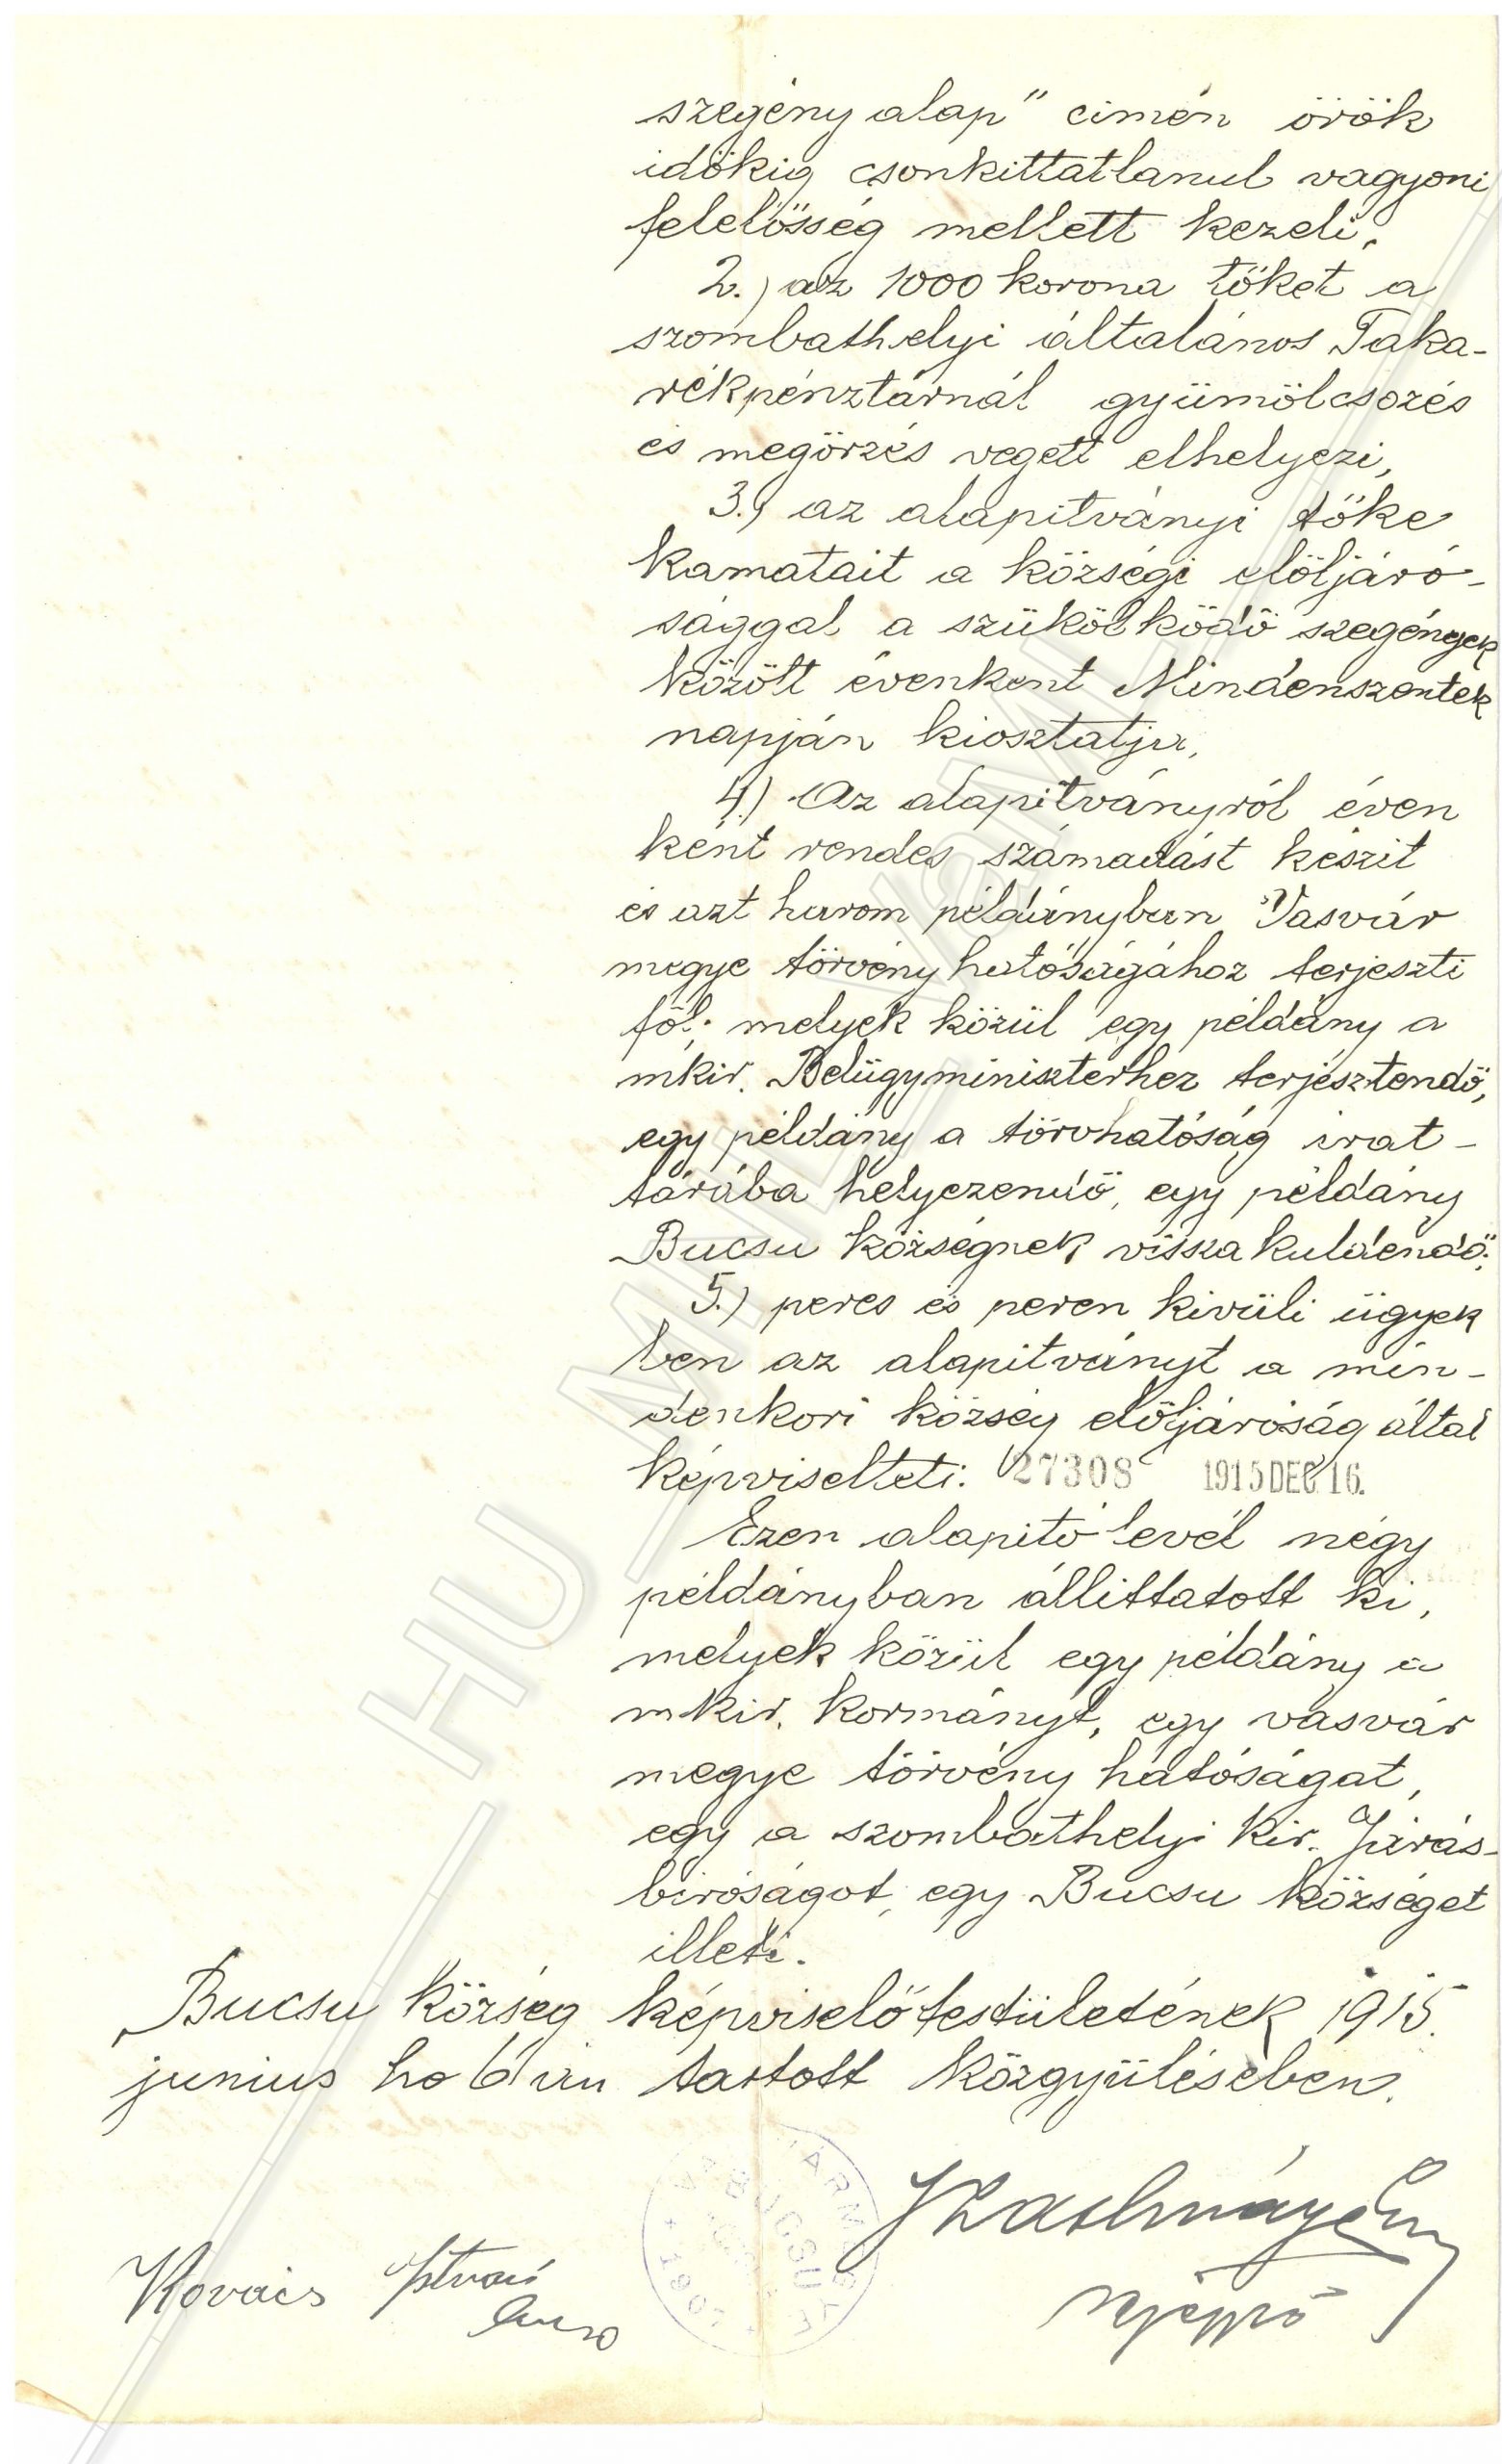 szegény alap" cimén örök
időkig csonkittatlanul vagyoni
felelősség mellett kezeli,
2.) az 1000 korona tőkét a
szombathelyi általános Taka-
rékpénztárnál gyümölcsozés
és megőrzés vegett elhelyezi,
3.) az alapitványi tőke
kamatait a községi elöljáró-
sággal a szükölködő szegények
között évenként Mindenszentek
napján kiosztatja,
4.) Az alapitványról éven
ként rendes számadást készit
és azt harom példányban Vasvár
megye törvényhatóságához terjeszti
föl; melyek közül egy példány a
mkir. Belügyminiszterhez terjesztendő,
egy példány a törvhatóság irat-
tárába helyezendő, egy példány
Bucsu községnek visszakuldendő;
5.) peres és peren kivüli ügyek
ben az alapitványt a min-
denkori község elöljáróság által
képviselteti. 27308 1915 DEC 16.
Ezen alapitó levél négy
példányban állittatott ki,
melyek közül egy példány a
mkir. kormányt, egy vasvár
megye törvény hatóságat,
egy a szombathelyi kir. Járás-
biróságot, egy Bucsu községet
illeti.
Bucsu község képviselőtestületének 1915.
junius ho 6 án tartott közgyülésében.
BUCSU
190
Kovács István
HU MNL VaML